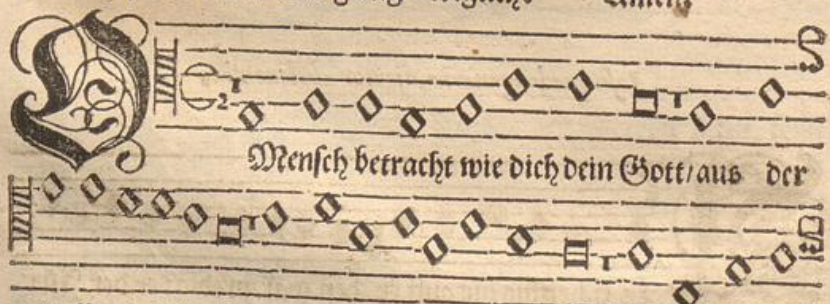 O Mensch betracht wie dich dein Gott/aus der